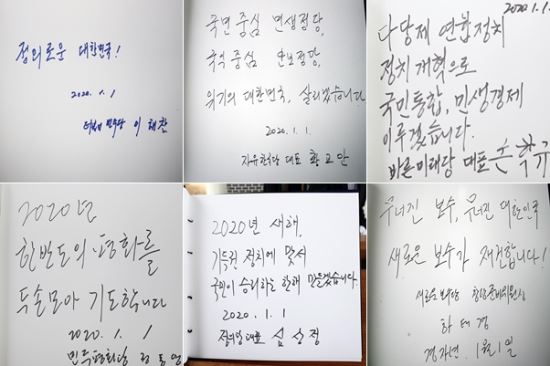 정의로운 대한민국!
2020. 1. 1
더불어민주당 이해찬
국민중심 민생정당,
국익중심 안보정당,
위기의 대한민국, 살리겠습니다
2020. 1. 1.
자유한국당 대표 황교안
2020. 1. 1.
다당제 연합정치
정치개혁으로
국민통합, 민생경제
이루겠습니다.
바른미래당 대표 손학규
2020년
한반도의 평화를
두손모아 기도합니다
2020. 1. 1
민주평화당 정동영
2020년 새해,
기득권 정치에 맞서
국민이 승리하는 한해 만들겠습니다.
2020. 1. 1
정의당 대표 심상정
무너진 보수, 무너진 대한민국
새로운 보수가 재건합니다!
새로운보수당 창당준비위원장
하태경
경자년. 1월 1일